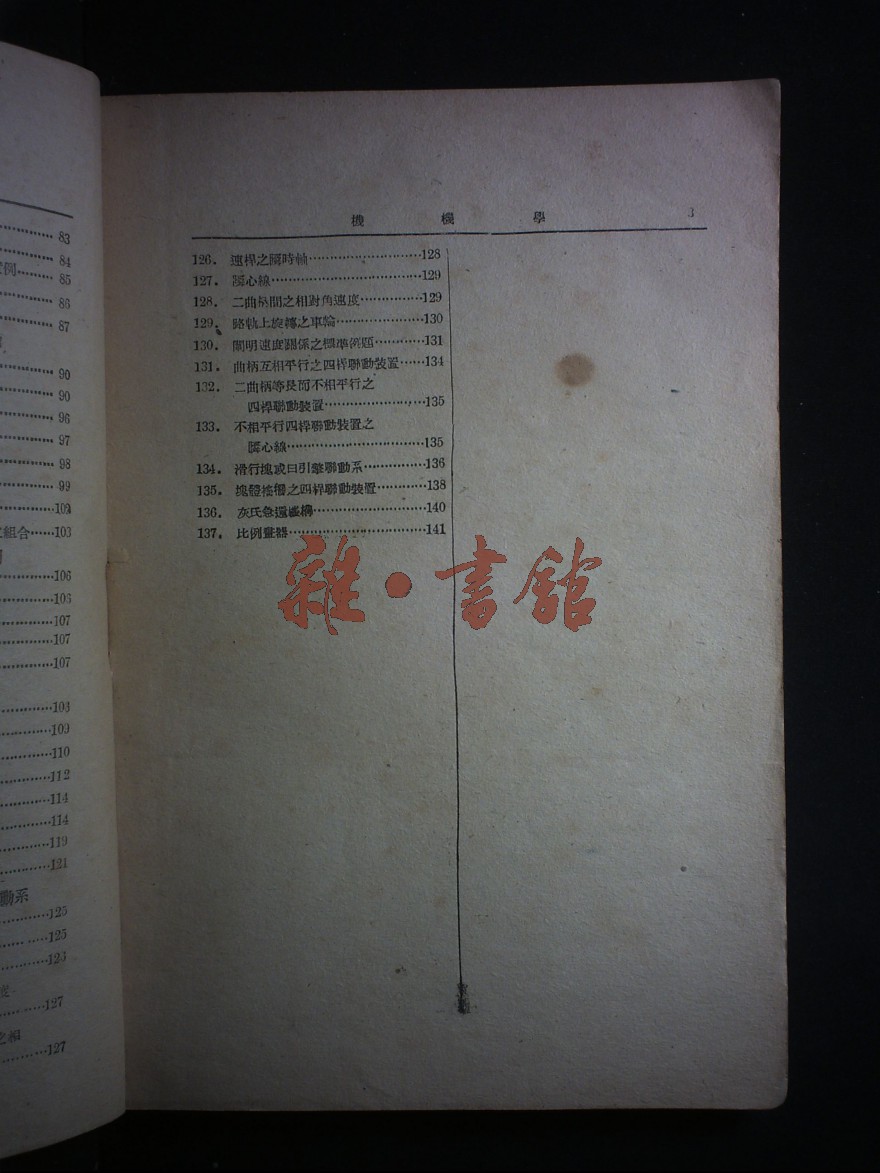 83
84
例 85
86
87
90
90
96
97
98
99
102
組合 103
106
106
107
107
107
108
109
110
112
114
114
119
121
聯動系
125
125
126
127
之相
127
機機學 3
126. 連桿之瞬時軸 128
127. 瞬心線 129
128. 二曲柄間之相對角速度 129
129. 路軌上旋轉之車輪 130
130. 闡明速度關係之標準例題 131
131. 曲柄互相平行之四桿聯動裝置 134
132. 二曲柄等長而不相平行之
四桿聯動裝置 135
133. 不相平行四桿聯動裝置之
瞬心線 135
134. 滑行塊或曰引擎聯動系 136
135. 塊體搖擺之四桿聯動裝置 138
136. 灰氏急還機構 140
137. 比例畫器 141
雜·書館